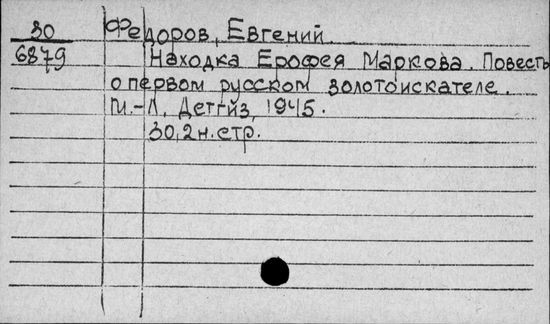 30 Федоров, Евгений.
6879 Находка Ерофея Маркова. Повесть
о первом русском золотоискателе.
М.-Л, Детгиз, 1945.
30,2 н.стр.